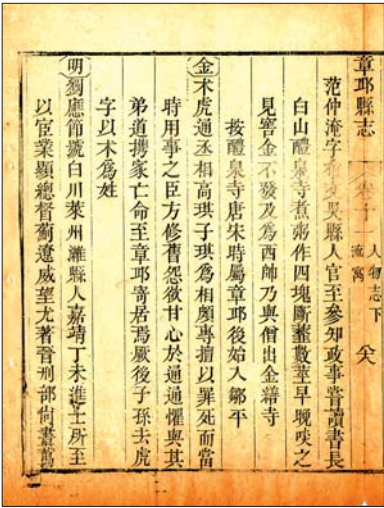 章邱縣志 卷十一 人物志下
流寓
范仲淹字希文吳縣人官至參知政事嘗讀書長
白山醴泉寺煮粥作四塊斷虀數莖早晚啖之
見窖金不發及爲西帥乃與僧出金繕寺
按醴泉寺唐宋時屬章邱後始入鄒平
金术虎通丞相高琪子琪爲相頗專擅以罪死而當
時用事之臣方修舊怨欲甘心於通通懼與其
弟道携家亡命至章邱寄居焉厥後子孫去虎
字以术爲姓
明劉應節號白川萊州濰縣人嘉靖丁未進士所至
以宦業顯總督薊遼威望尤著晉刑部尚書萬